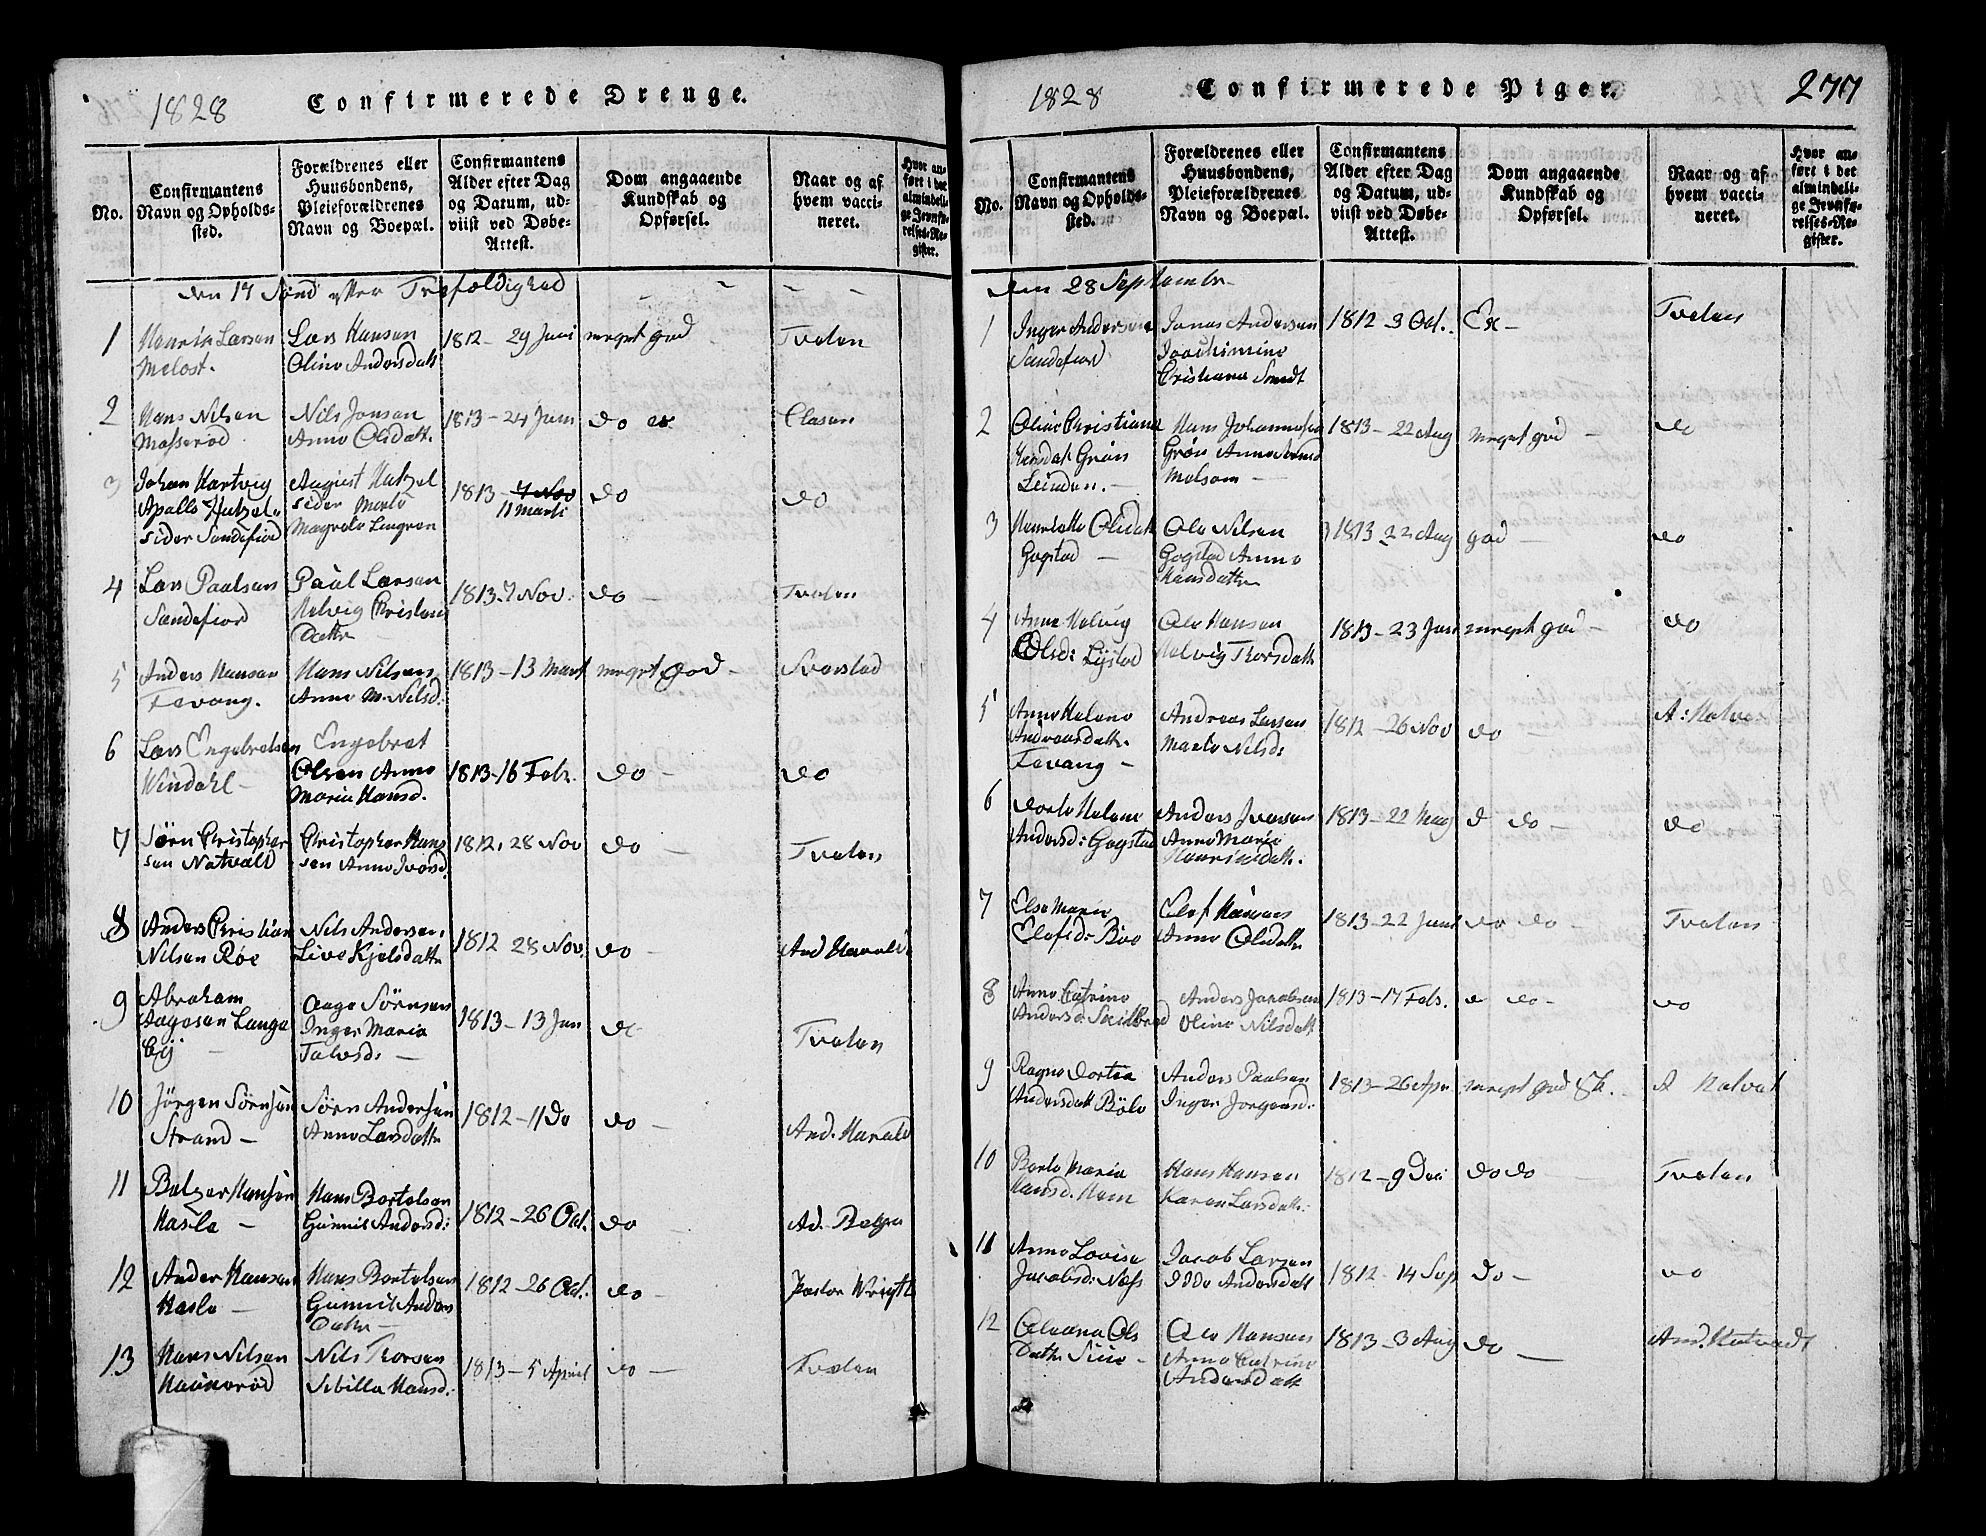 1828 Confirmerede Drenge.
No.
Confirmantens
Navn og Opholds-
sted.
Forældrenes eller
Huusbondens,
Pleieforældrenes
Navn og Boepæl.
Confirmantens
Alder efter Dag
og Datum, ud-
viist ved Døbe-
Attest.
Dom angaaende
Kundskab og
Opførsel.
Naar og af
hvem vacci-
neret.
Hvor an-
ført i det
almindeli-
ge Jevnfø-
relses-Re-
gister.
den 17 Sønd efter Trefoldighed
1 Henrik Larsen
Melost.
Lars Hansen
Oline Andersdatt
1812 - 29 Juni
meget god
Tveten
2 Hans Nilsen
Masserød
Nils Jonsen
Anne Olsdattr.
1813 - 24 Juni
do
Clasen
3 Johan Hartvig
Sandefiord
August
Marte
1813 - 7 Nov
11 Marti
do
do
4 Lars Paalsen
Sandefiord
Paul Larsen
Helvig Christens
Dattr
1813. 7 Nov.
do -
Tveten
5 Anders Hansen
Fevang.
Hans Nilsen
Anne M. Nilsd.
1813 - 13 Mart
meget god -
Svarstad
6 Lars Engebretsen
Windahl -
Engebret
Olsen Anne
Maria Hansd.
1813 - 16 Febr.
do -
do
7 Sørn Christopher
sen Natvall
Christopher Hans
sen Anne Ivarsd.
1812, 28 Nov
do -
Tveten
8 Anders Christian
Nilsen Røe
Nils Andersen.
Live Kjelsdattr
1812 28 Nov.
do -
9 Abraham
Aagesen Lange
Bÿ -
Aage Sørnsen
Inger Maria
1813 - 13 Jan
do
Tveten
10 Jörgen Sörnsen
Strand -
Sörn Andersen
Anne Larsdattr
1812 - 11 Do
do -
11 Balzer Hansen
Hasle -
Hans Bertelsen
Gunnil Andersd:
1812 - 26 Oct.
do -
12 Ander Hansen
Hasle -
Hans Bertelsen
Gunnil Anders
Dattr -
1812 - 26 Oct.
do -
Pastor Wright
13 Hans Nilsen
Haunerød
Nils Thorsen
Sibilla Hansd.
1813 - 5 April
do -
Tveten
1828 Confirmerede Piger. 277
No.
Confirmantens
Navn og Opholds-
sted.
Forældrenes eller
Huusbondens,
Pleieforældrenes
Navn og Boepæl.
Confirmantens
Alder efter Dag
og Datum, ud-
viist ved Døbe-
Attest.
Dom angaaende
Kundskab og
Opførsel.
Naar og af
hvem vacci-
neret.
Hvor an-
ført i det
almindeli-
ge Jevnfø-
relses-Re-
gister.
den 28 Septembr -
1 Inger Andersen
Sandefiord
Jonas Andersen
Joachimine
Christiana Smidt
1812 - 3 Oct.
Tveten
2 Oline Christiane
Hansdatt Grøn
Hans Johannesen
Grøn Anne
1813 - 22 Aug
meget god -
do
3 Henriette Olsdatt
Gogstad -
Ole Nilsen
Gogstad Anne
Hansdattr
1813 - 22 Aug
god -
do
4 Anne Helvig
Olsd: Lÿstad
Ole Hansen
Helvig Thorsdattr
1813 - 23 Jan
meget god -
do
5 Anne Helene
Andreasdattr.
Fevang -
Andreas Larsen
Marte Nilsd:
1812 - 26 Nov
do -
6 Dorte Helene
Andersd: Gogstad
Anders Iversen
Anne Marie
Henriksdattr.
1813 - 22 Maj
do -
do
7 Else Marie
Elefsd: Böe
Elef Hansen
Anne Olsdattr
1813 - 22 Juni
do do -
Tveten
8 Anne Catrine
Andersd
Anders Jacobsen
Oline Nilsdatt
1813 - 17 Febr.
do -
do
9 Ragne Dortea
Andersdatt Böle
Anders Paalsen
Inger Jorgensd:
1813 - 26 Apr
meget god
10 Berte Maria
Hansd. Hem
Hans Hansen
Karen Larsdattr.
1812 - 9 Dec
do do -
Tveten
11 Anne Lovise
Jacobsd: Næss
Jacob Larsen
Idde Andersdatt
1812 - 14 Sep
do -
do
12 Oleana Ols
Dattr
Ole Hansen
Anne Catrine
Andersdatt
1813 - 3 Aug
do -